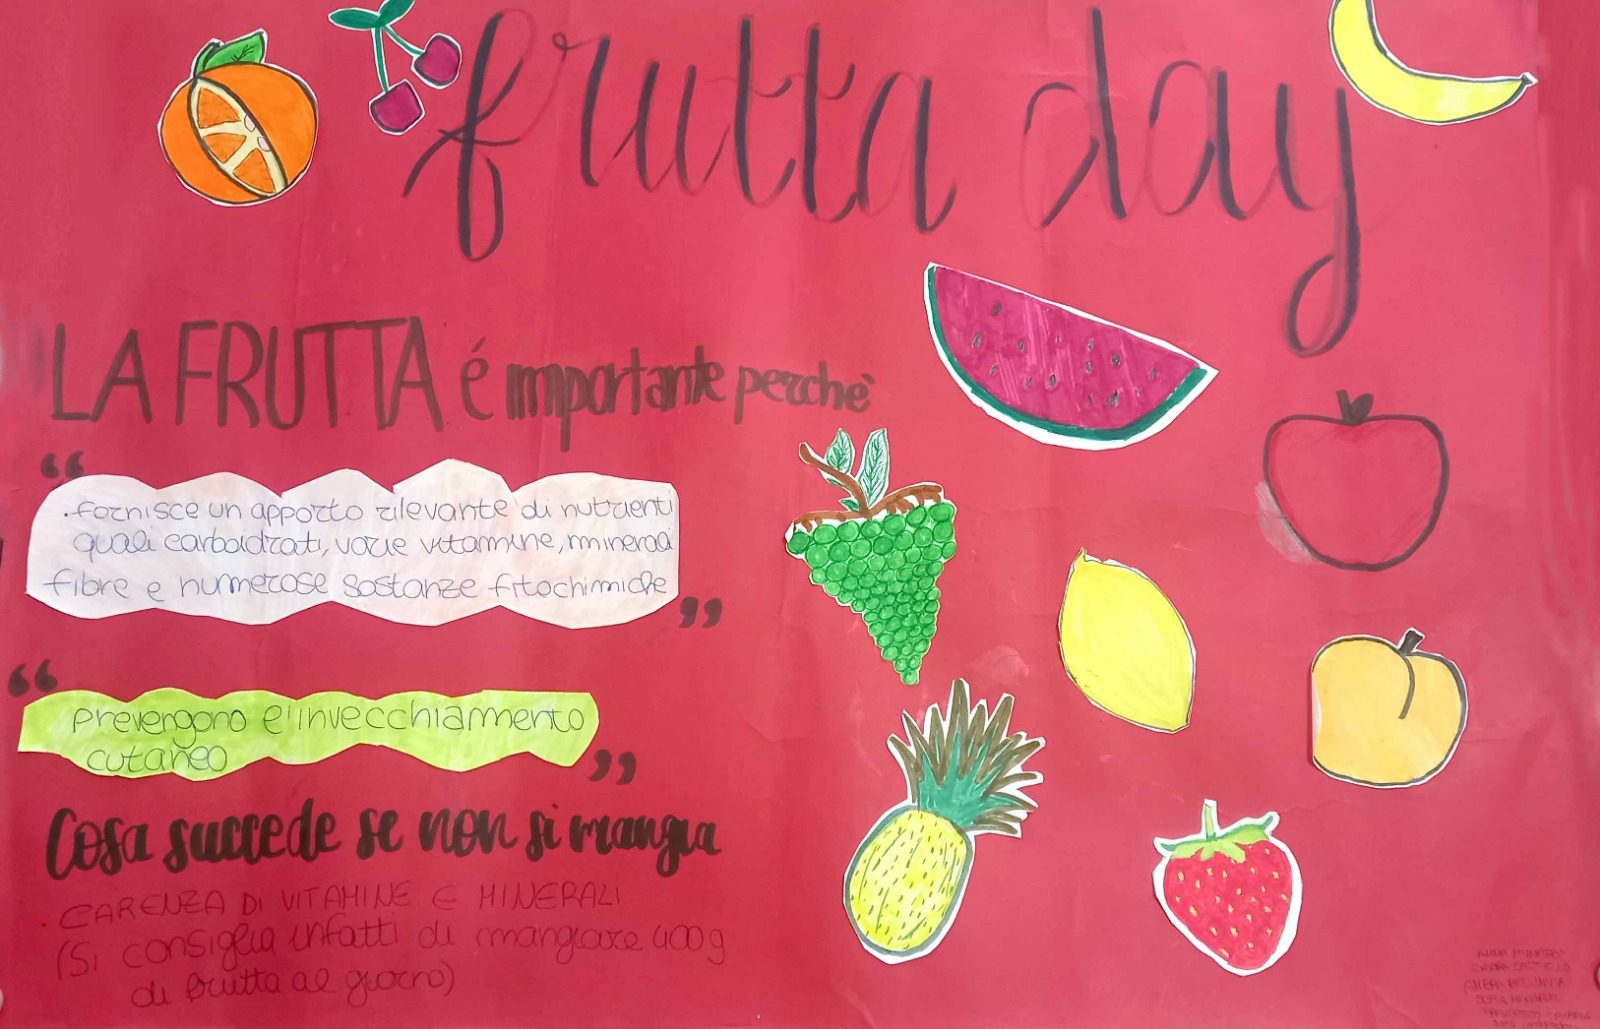 frutta day
LA FRUTTA é importante perchè
“
.fornisce un apporto rilevante di nutrienti
quali carboidrati, varie vitamine, minerali
fibre e numerose sostanze fitochimiche
”
“
prevengono l'invecchiamento
cutaneo
”
Cosa succede se non si mangia
. CARENZA DI VITAMINE E MINERALI
(Si consiglia infatti di mangiare 400g
di frutta al giorno)
ANNA
CHIARA
SOFIA